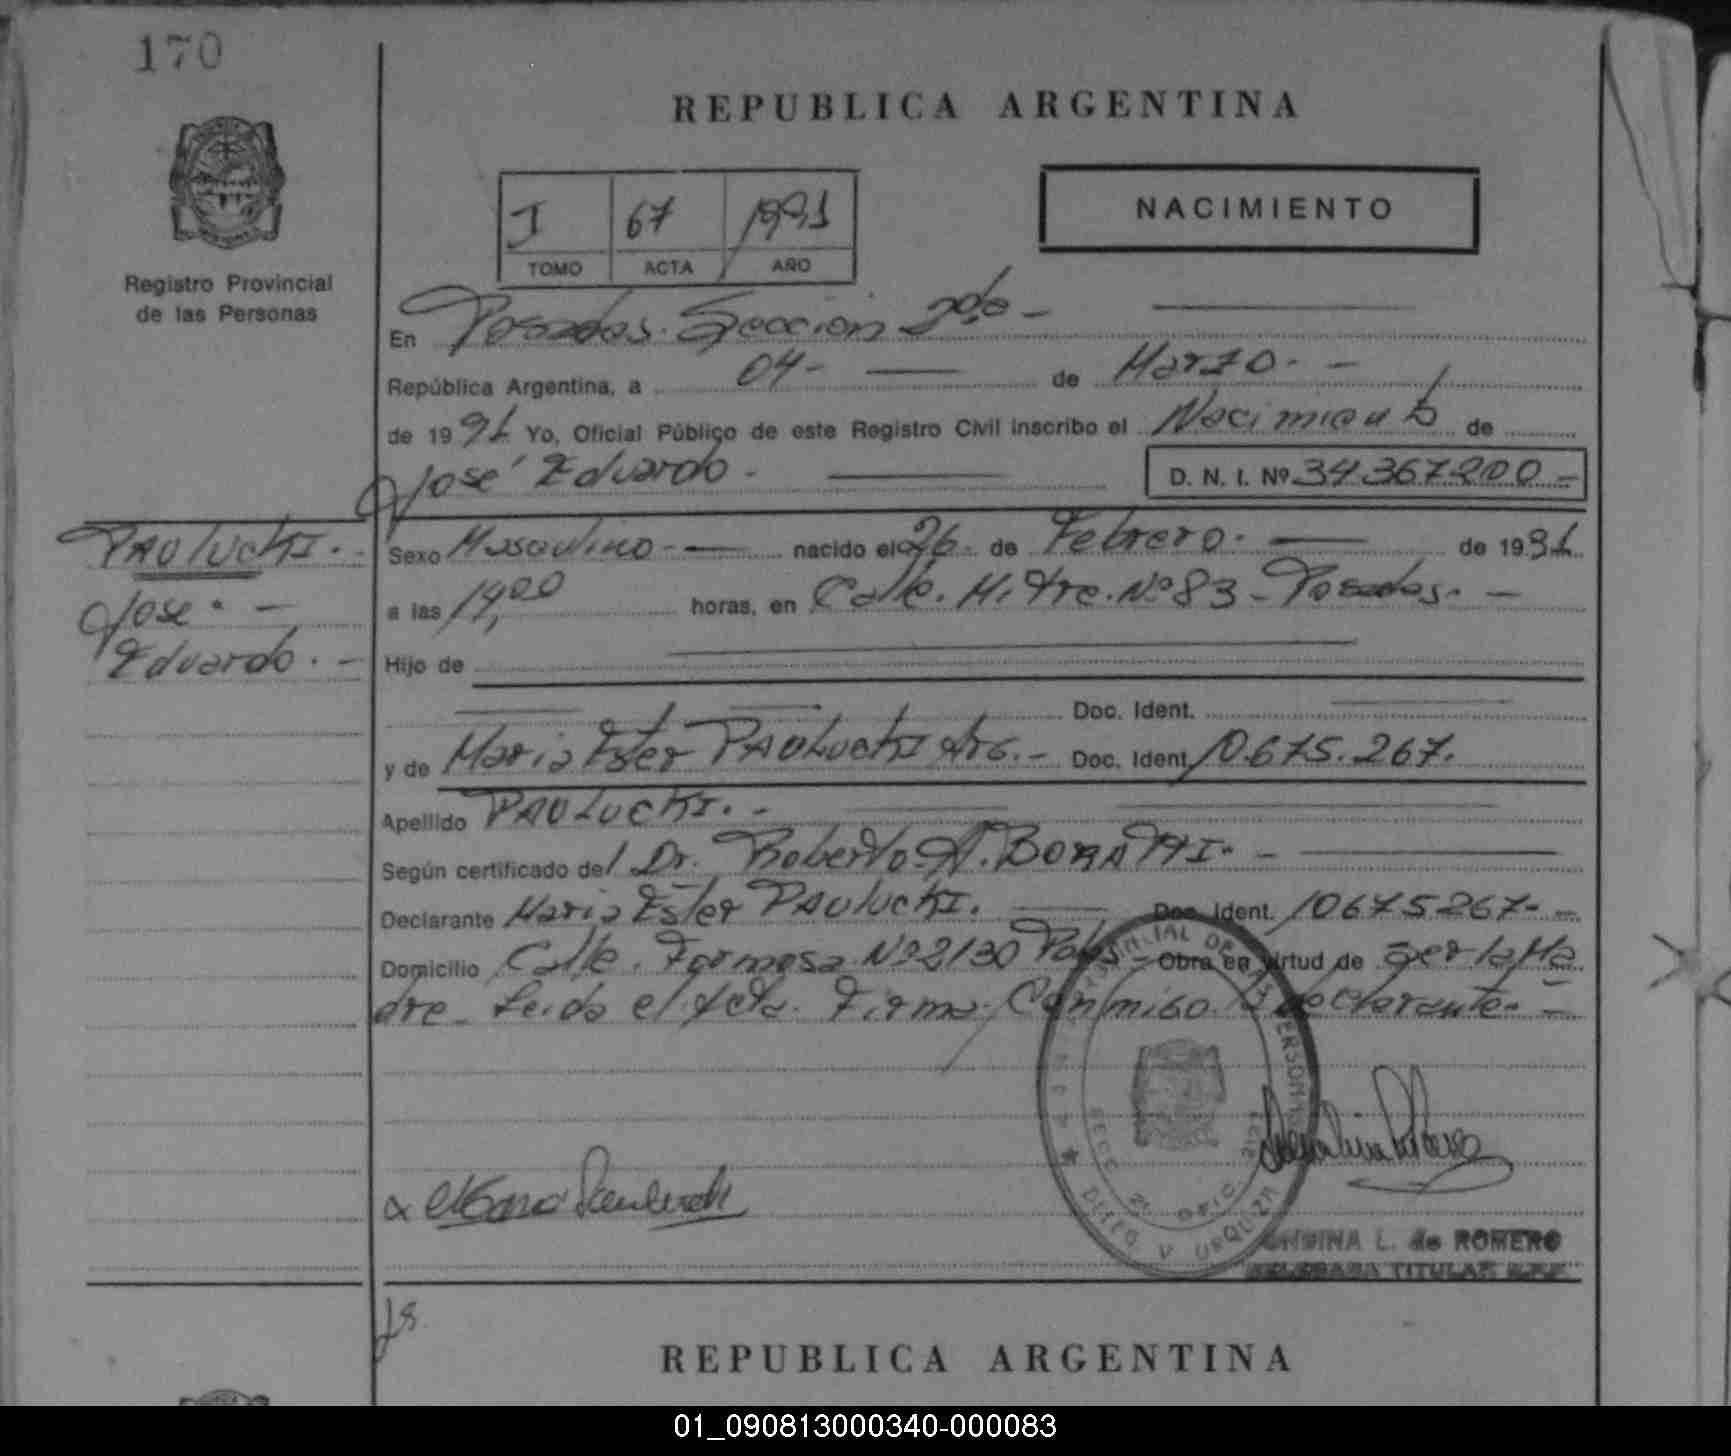 170
REPUBLICA ARGENTINA
I 67 1991
TOMO ACTA AÑO
NACIMIENTO
Registro Provincial
de las Personas
En Posadas. Sección 2da -
República Argentina, a 04- de Marzo. -
de 1991 Yo, Oficial Público de este Registro Civil inscribo el Nacimiento de
José Eduardo. D. N. I. Nº 34367200-
PAULUCKI. -
José. -
Eduardo. -
Sexo Masculino - nacido el 26 de Febrero. de 1991
a las 14,00 horas, en Calle. Mitre. Nº 83 - Posadas. -
Hijo de
Doc. Ident.
y de Maria Ester PAULUCKI Arg. - Doc. Ident. 10.675.267.
Apellido PAULUCKI. -
Según certificado del Dr. Roberto A. -
Declarante Maria Ester PAULUCKI. Doc. Ident. 10675267- -
Domicilio Calle. Formosa Nº 2130 Pdas - Obra en virtud de ser la Ma
dre. Leida el Acta. Firma Conmigo la declarante. -
L. de ROMERO
DELEGADA TITULAR
REPUBLICA ARGENTINA
01_090813000340-000083